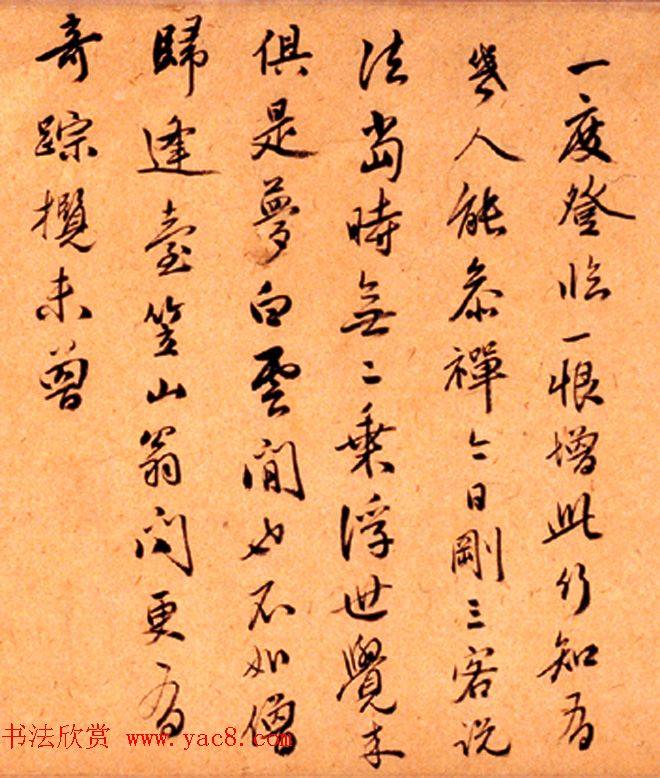 一度登临一恨增此行知有
幾人能叅禪今日剛三客说
法當時無二乘浮世覺来
俱是夢白雲閒也不如僧
歸逢臺笠山翁問更有
奇踪攬未曾
书法欣赏 www.yac8.com